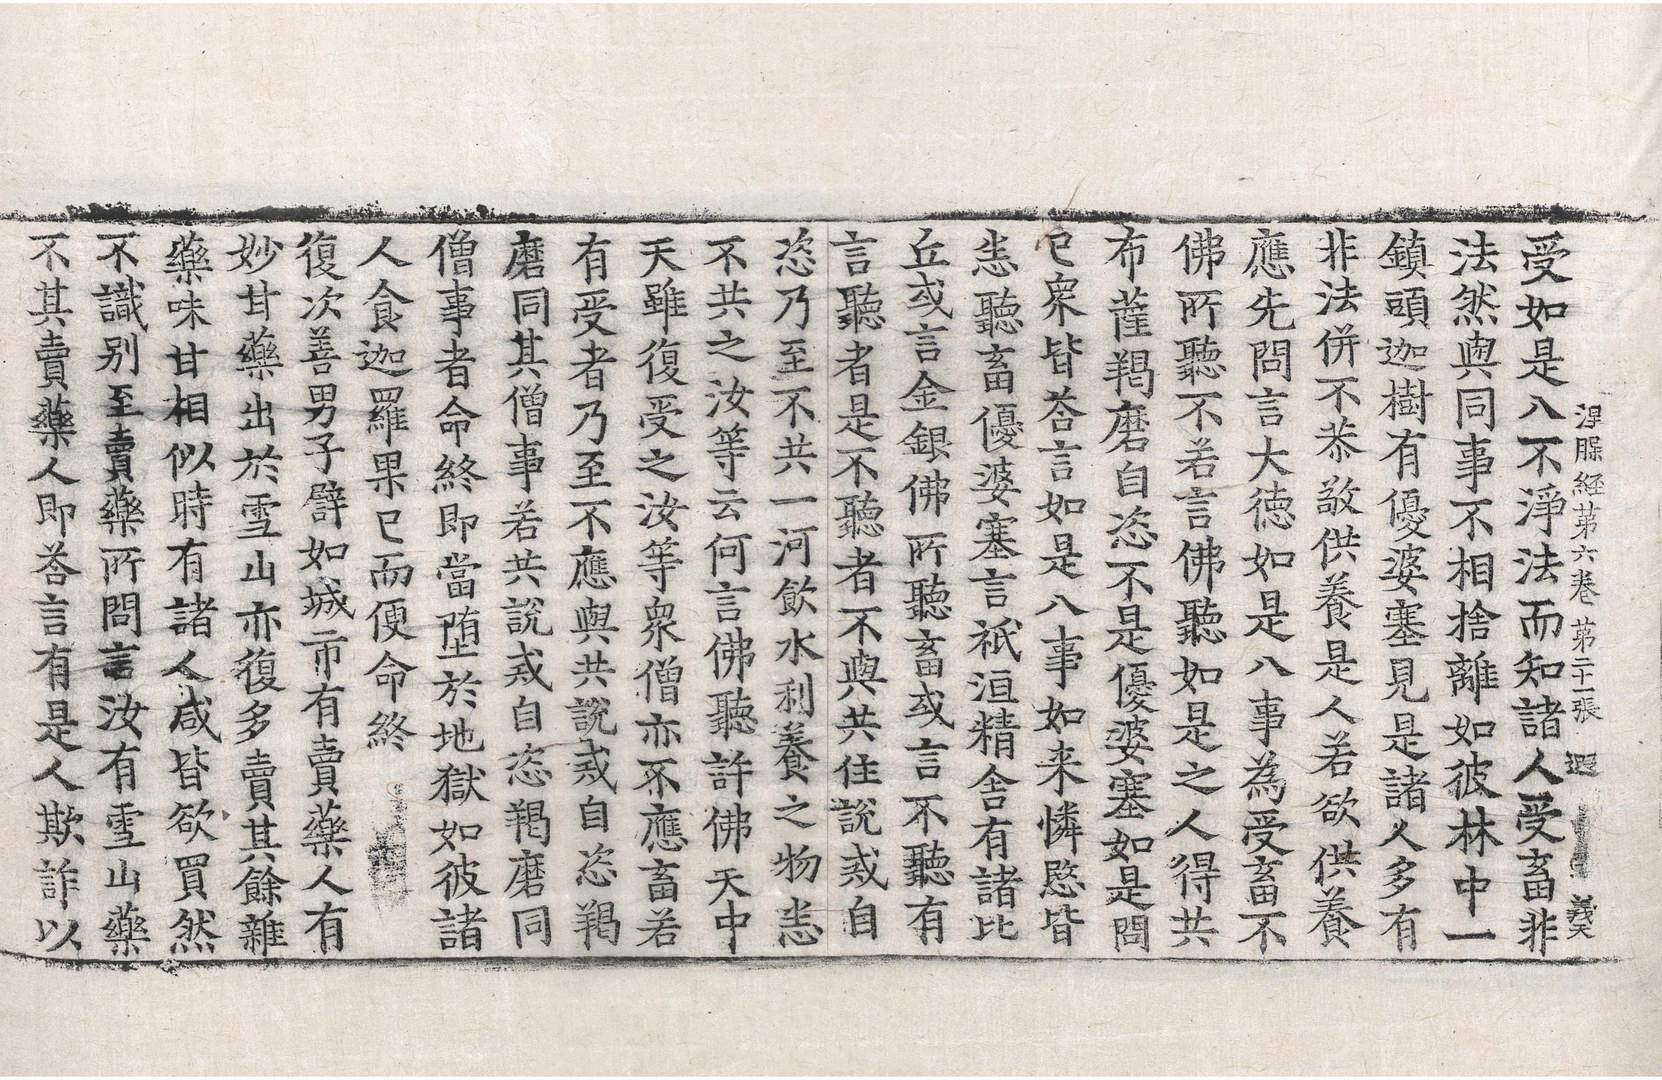 涅脲経第六卷 第二十一張 遐 義天
受如是八不淨法而知諸人受畜非
法然與同事不相捨離如彼林中一
鎮頭迦樹有優婆塞見是諸人多有
非法併不恭敬供養是人若欲供養
應先問言大德如是八事為受畜不
佛所聽不若言佛聽如是之人得共
布薩羯磨自恣不是優婆塞如是問
已衆皆荅言如是八事如来憐愍皆
恚聽畜優婆塞言祇洹精舍有諸比
丘或言金銀佛所聽畜或言不聽有
言聽者是不聽者不與共住說戒自
恣乃至不共一河飲水利養之物恚
不共之汝等云何言佛聽許佛天中
天雖復受之汝等衆僧亦不應畜若
有受者乃至不應與共說戒自恣羯
磨同其僧事若共說戒自恣羯磨同
僧事者命終即當堕於地獄如彼諸
人食迦羅果已而便命終
復次善男子譬如城市有賣藥人有
妙甘藥出於雪山亦復多賣其餘雜
藥味甘相似時有諸人咸皆欲買然
不識别至賣藥所問言汝有雪山藥
不其賣藥人即荅言有是人欺詐以